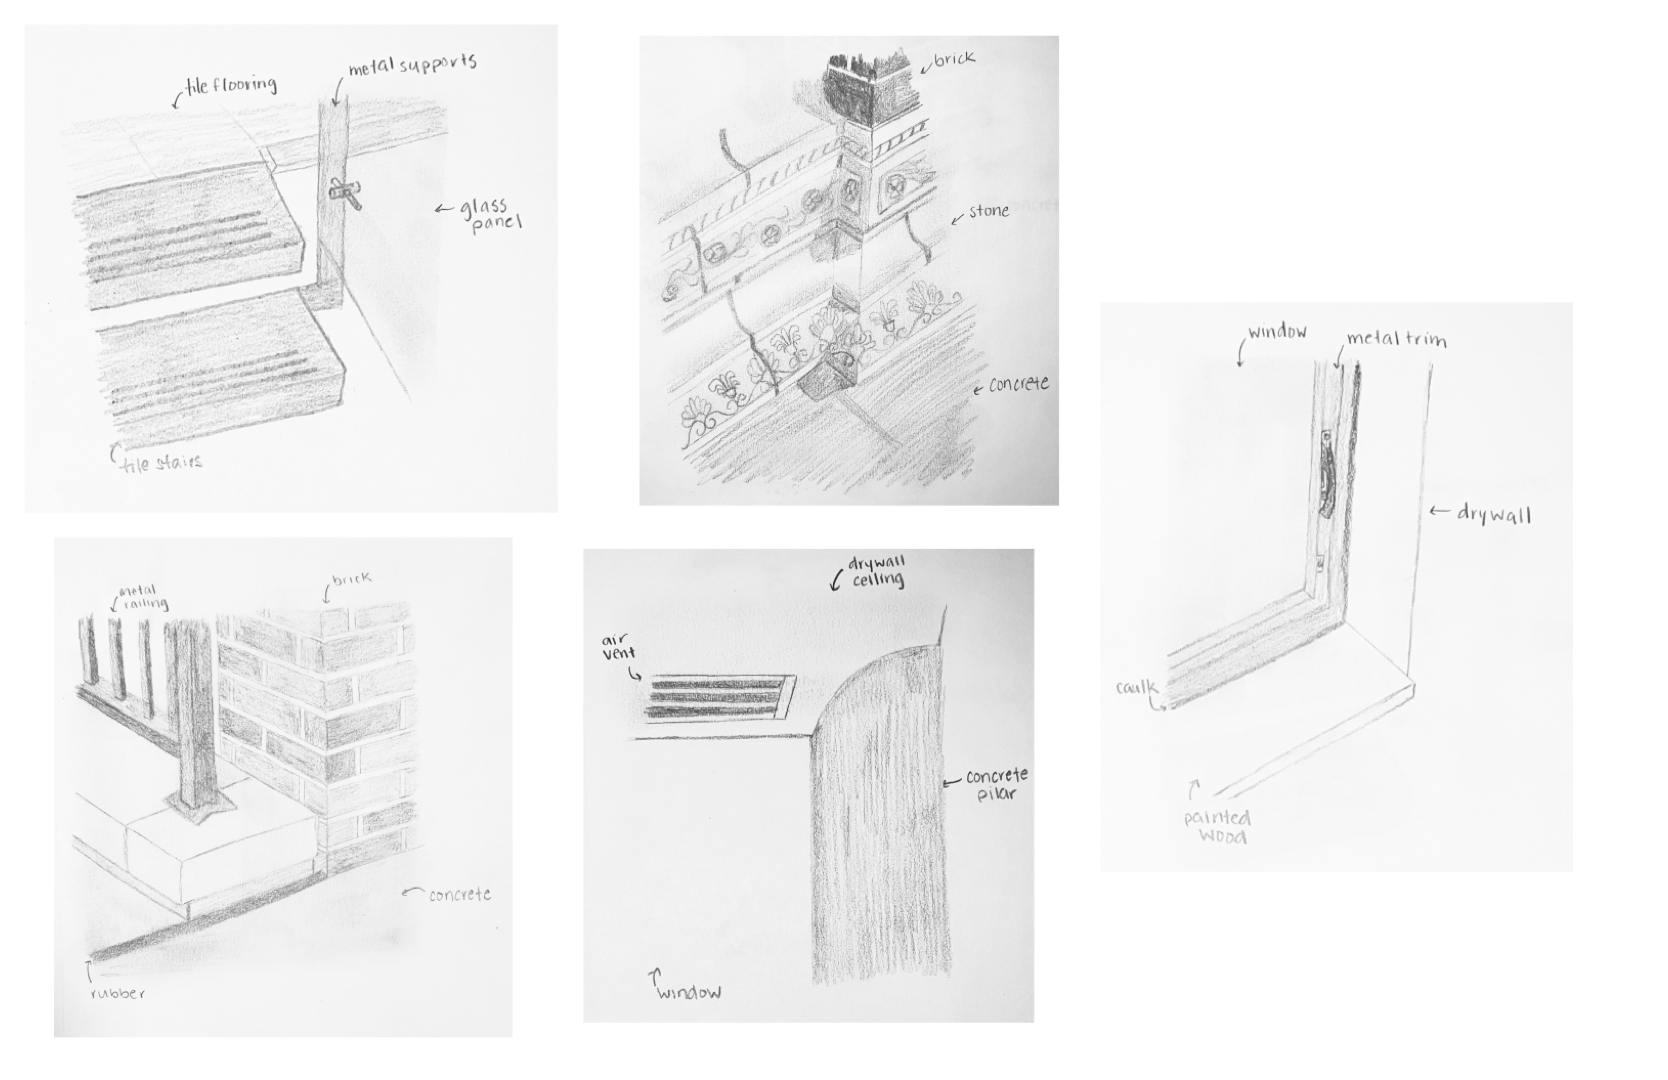 tile flooring
metal supports
glass
panel
tile stairs
brick
stone
concrete
window
metal trim
drywall
caulk
painted
wood
metal
railing
brick
concrete
rubber
drywall
ceiling
air
vent
concrete
pilar
window